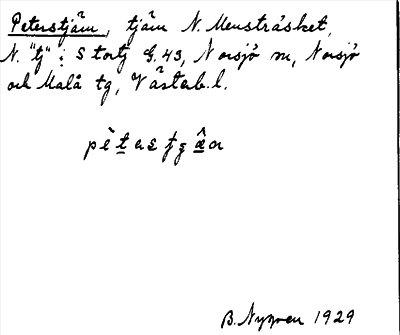 Peterstjärn, tjärn N. Mensträsket,
N. "tj" i Stortj G.43, Norsjö sn, Norsjö
och Malå tg, Västerb.l.
B. Nygren 1929